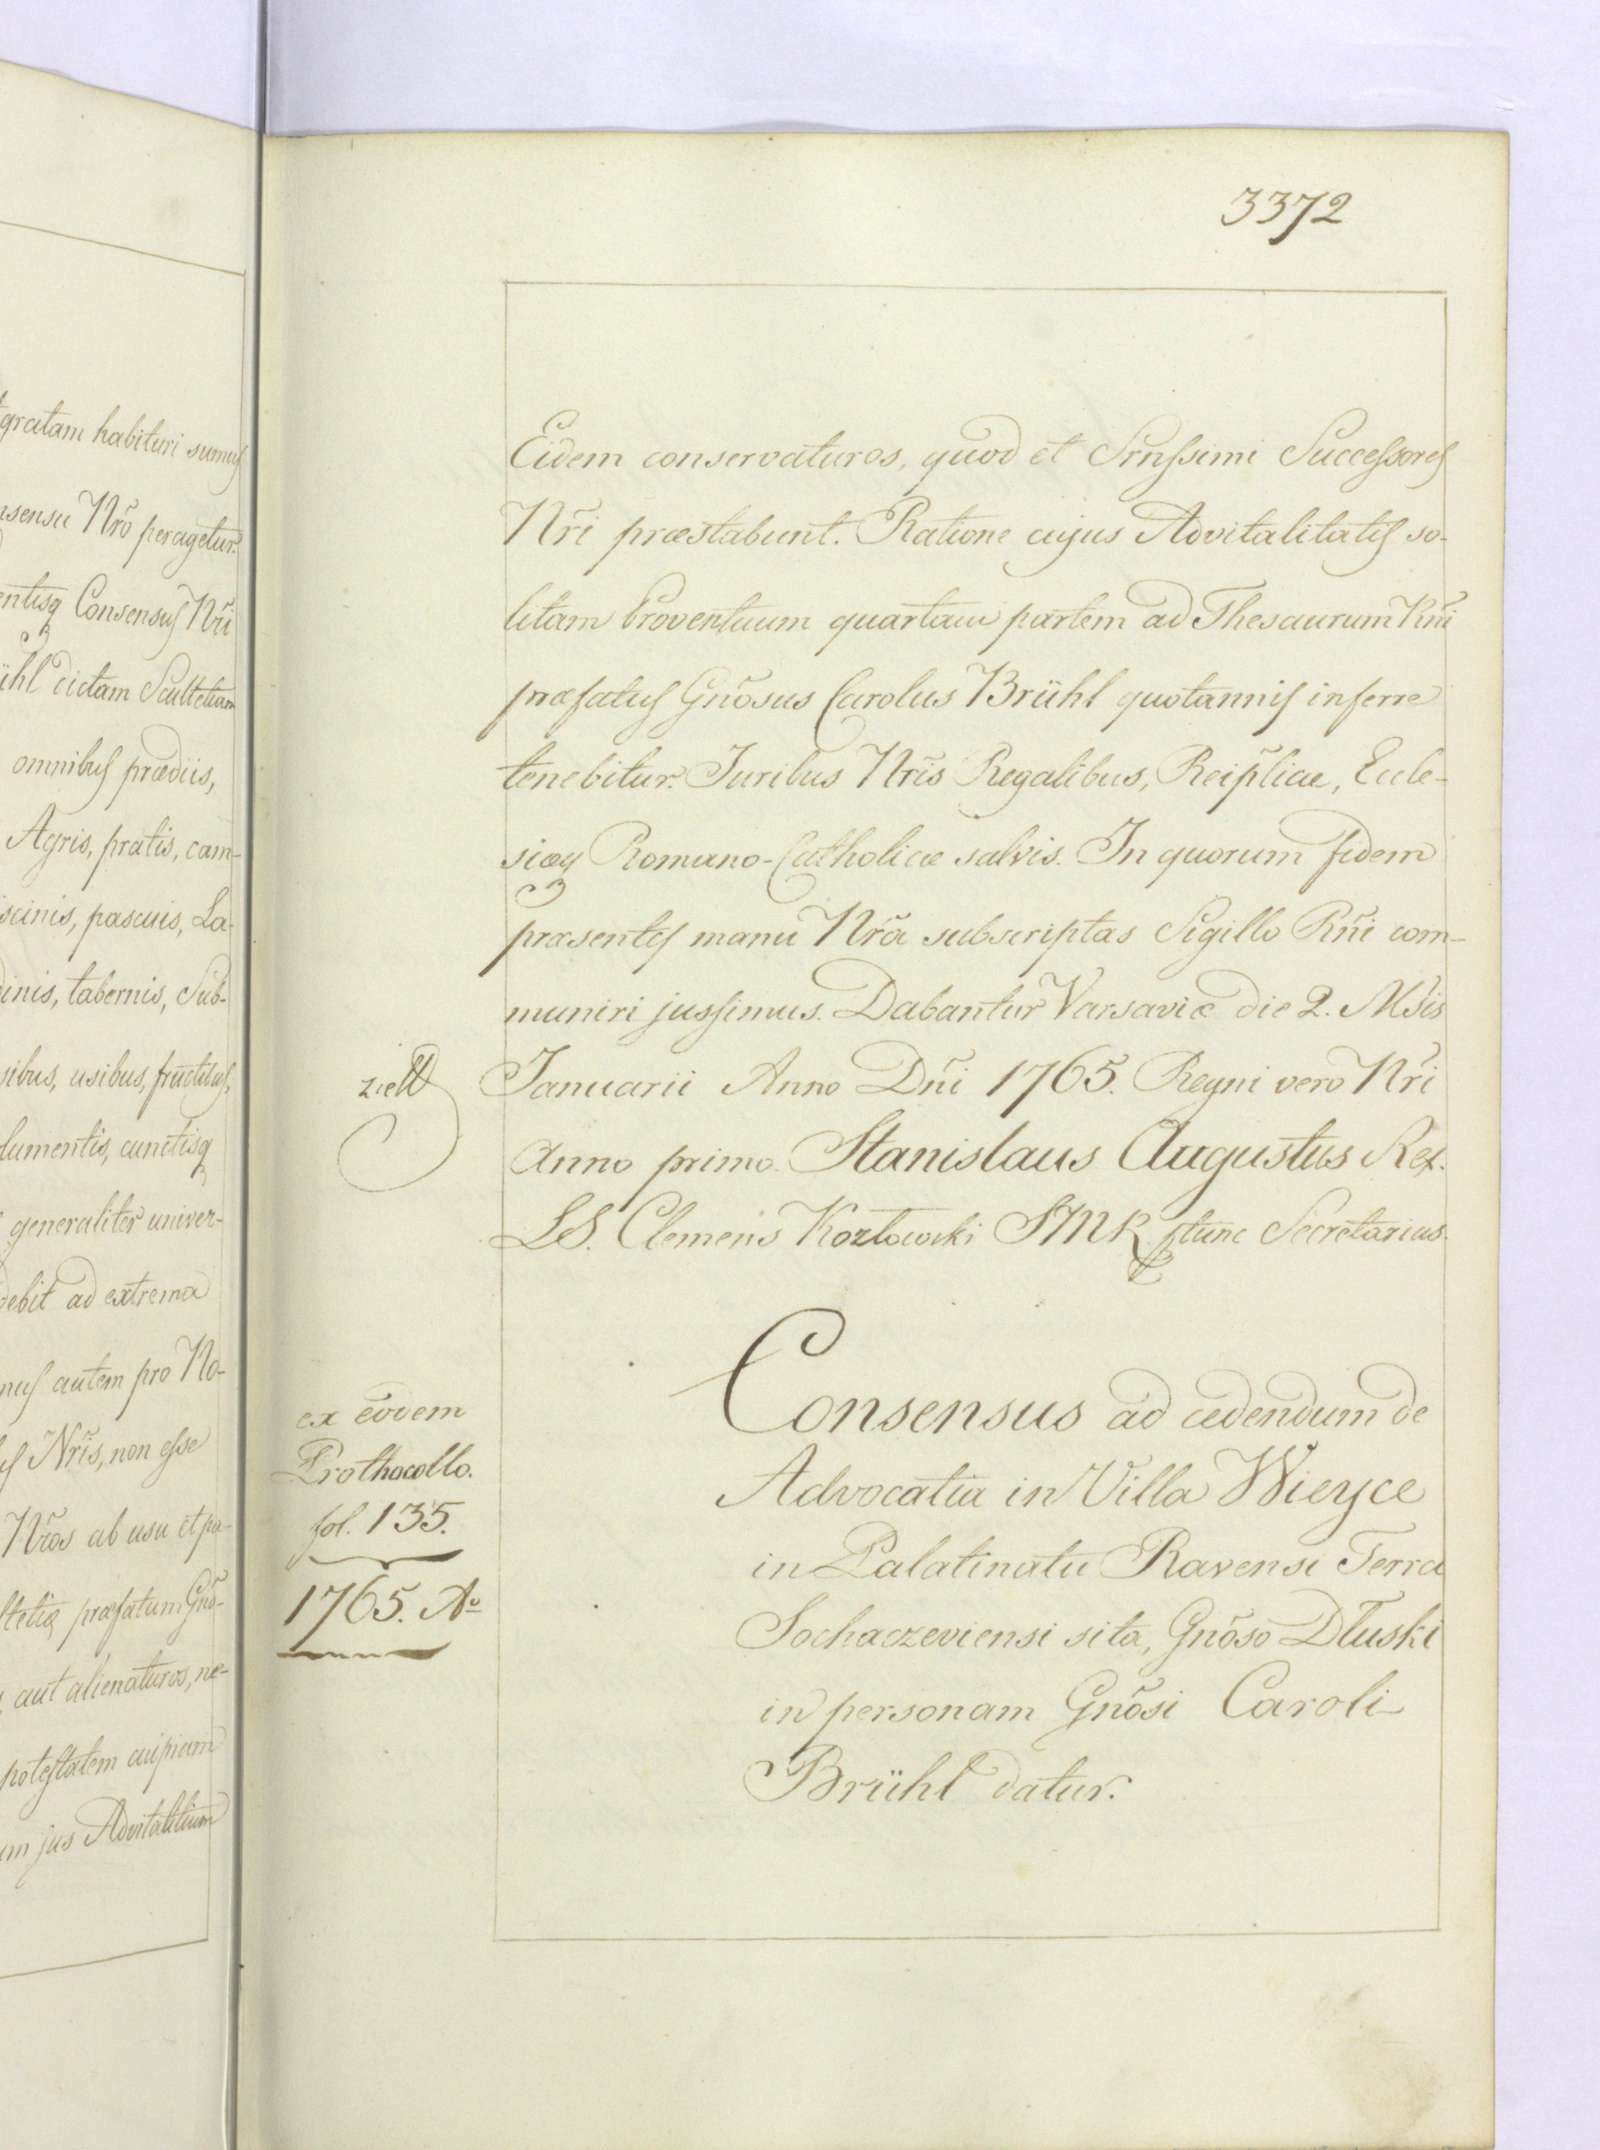 gratam habituri sumus
nsensu Nr̃o peragetur.
entisq Consensus Nr̃i
ühl dictam Scultetiam
omnibus prædiis,
Agris, pratis, cam-
iscinis, pascuis, La-
dinis, tabernis, Sub-
sibus, usibus, fructibus,
lumentis, cunctisq
generaliter univer-
debit ad extrema
mus autem pro No-
Nr̃is, non esse
Nr̃os ab usu et po-
ltetiæ præfatum Gño-
aut alienaturos, ne-
potestatem cuipiam
um jus Advitalitium
3372
Eidem conservaturos, quod et Srnssimi Successores
Nr̃i præstabunt. Ratione cujus Advitalitatis so-
litam Proventuum quartam partem ad Thesaurum Rñi
præfatus Gñosus Carolus Brühl quotannis inferre
tenebitur. Juribus Nr̃is Regalibus, Reipl̃icae, Eccle-
siæq Romano-Catholicæ salvis. In quorum fidem
præsentes manu Nr̃a subscriptas Sigillo Rñi com-
muniri jussimus. Dabantur Varsaviæ die 2. Mẽis
Januarii Anno Dñi 1765. Regni vero Nr̃i
Anno primo. Stanislaus Augustus Rex.
LS. Clemens Kozłowski SMR ptunc Secretarius.
ex eodem
Prothocollo.
fol. 135.
1765. Aº
Consensus ad cedendum de
Advocatia in Villa Wieyce
in Palatinatu Ravensi Terra
Sochaczeviensi sita, Gñoso Dłuski
in personam Gñosi Caroli
Brühl datur.